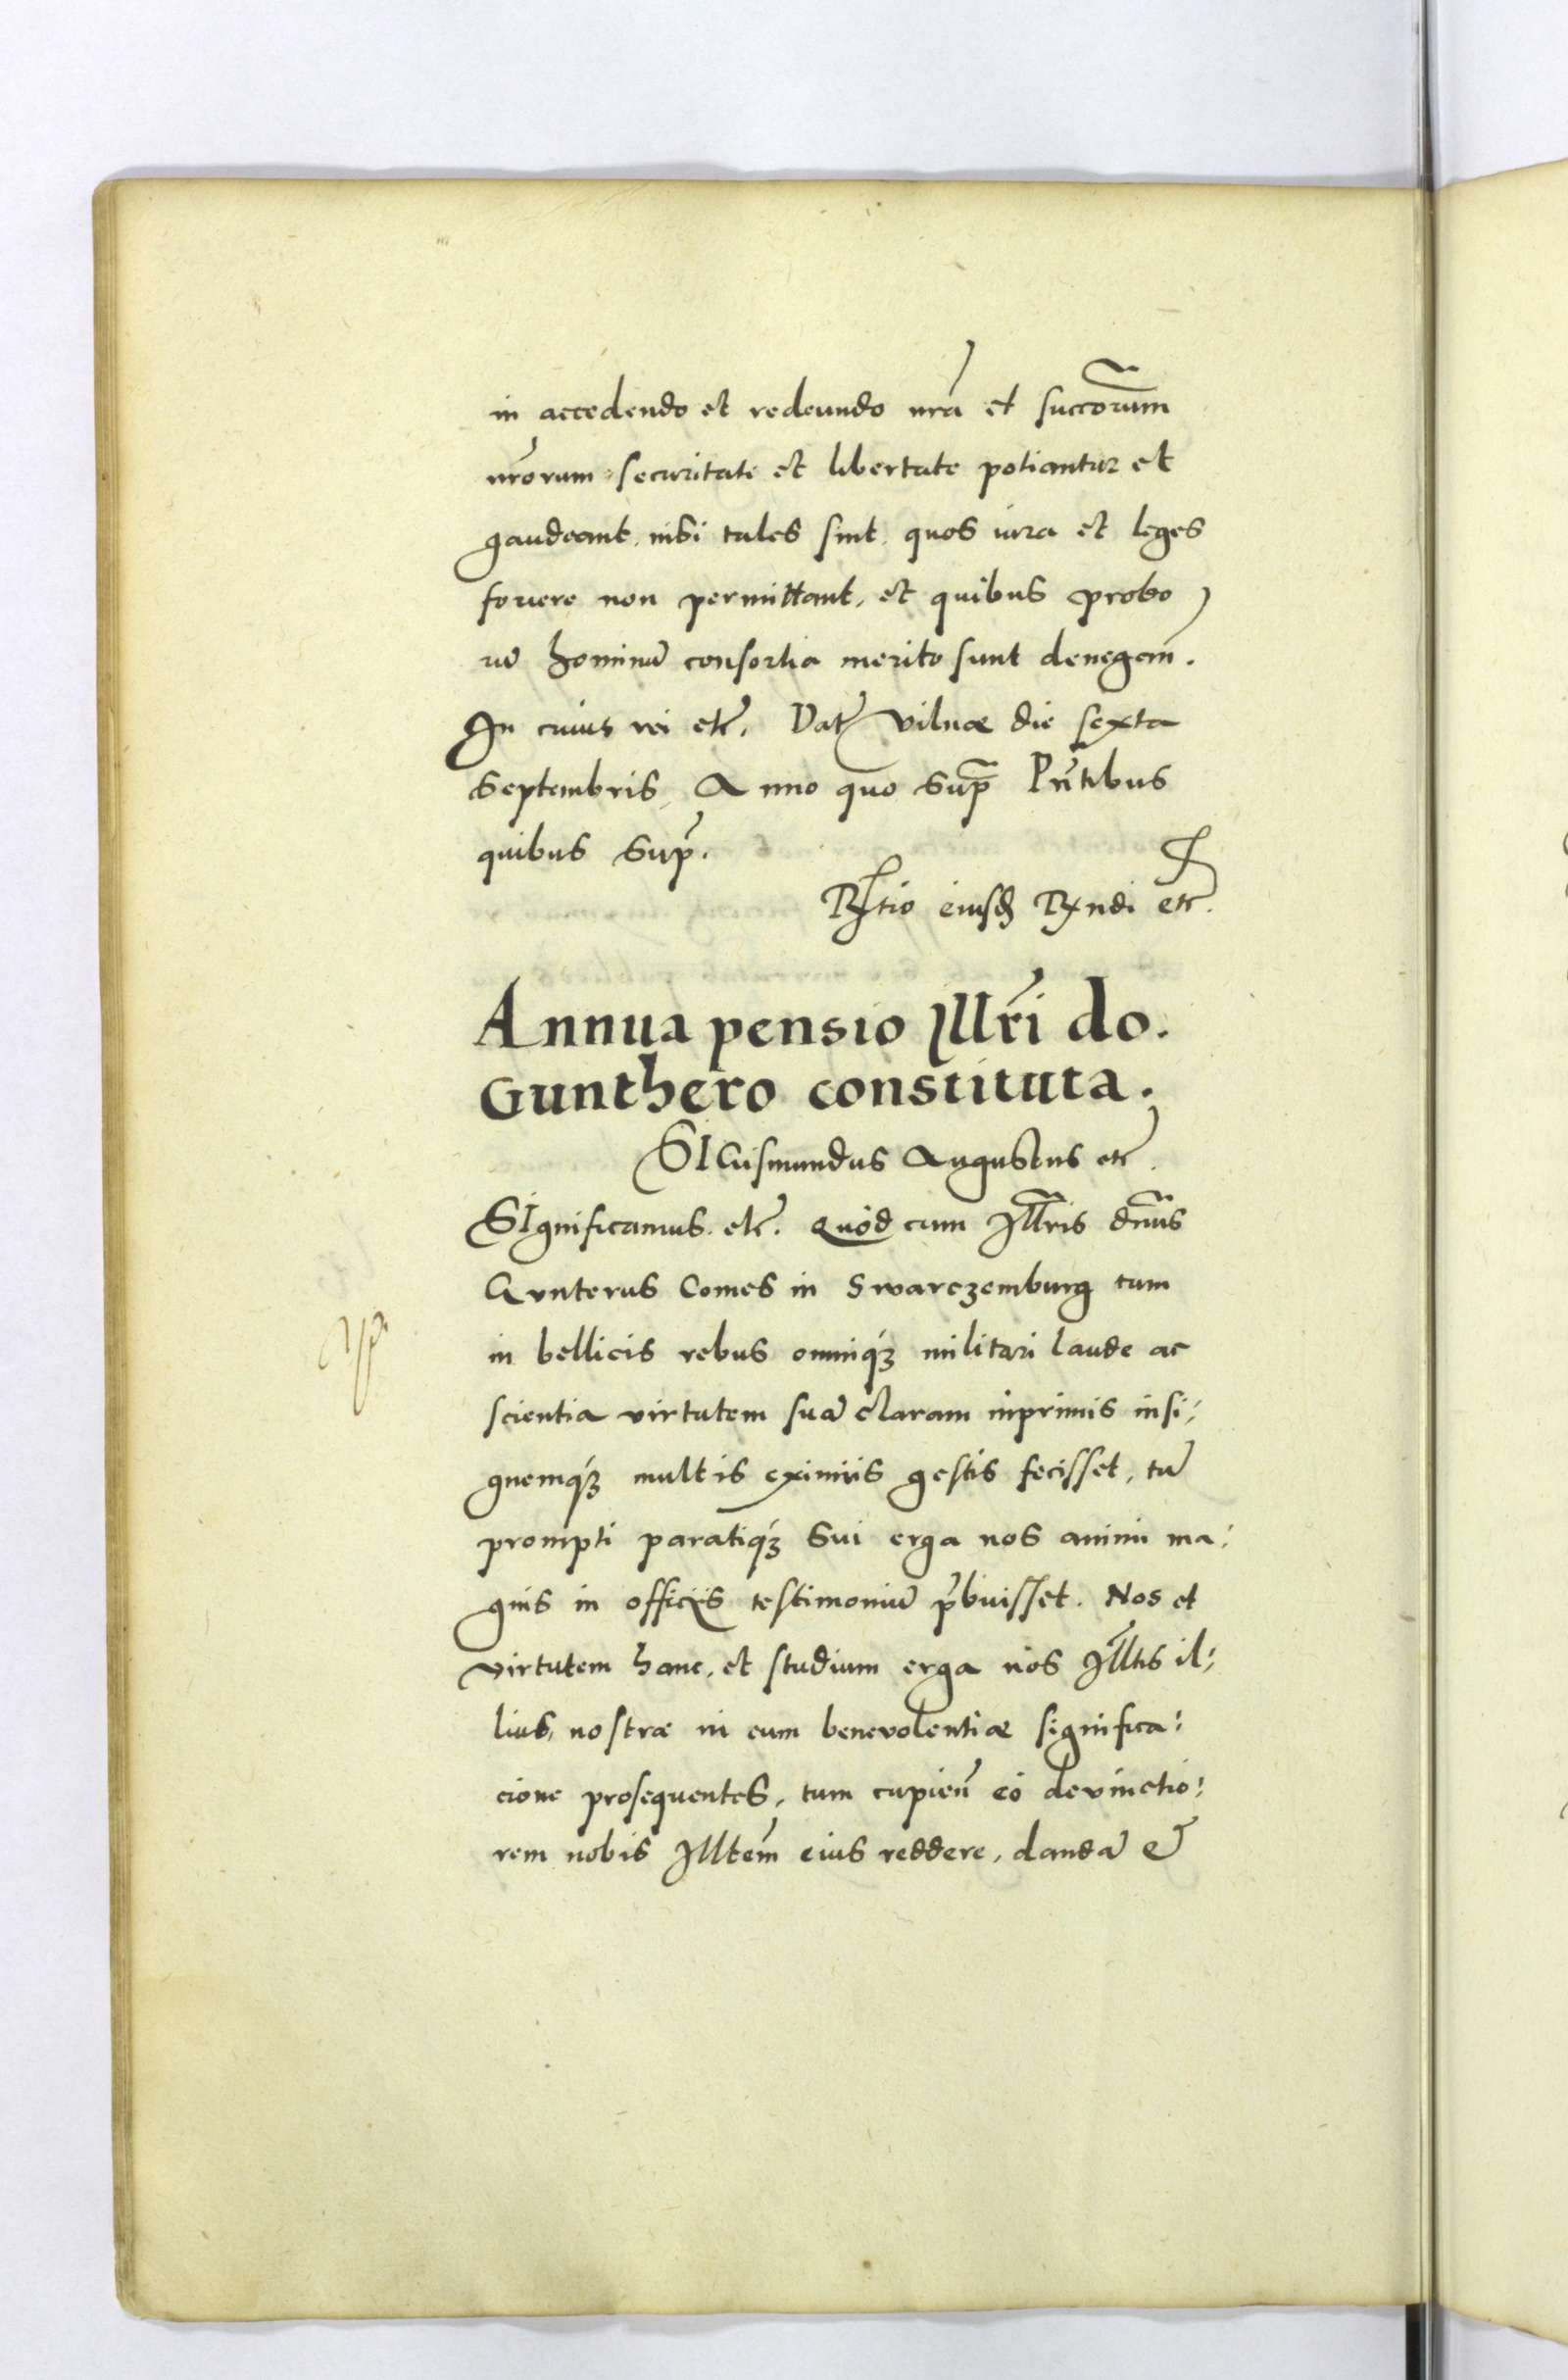 in accedendo et redeundo nrã et succõrum
nr̃orum securitate et libertate potiantur et
gaudeant, nisi tales sint quos iura et leges
fouere non permittant, et quibus probo
rũ hominũ consortia merito sunt denegan̄.
In cuius rei etc̃. Dat̃ Vilnæ die sexta
Septembris, Anno quo Sup̃ Pñtibus
quibus Sup̃.
Rltio eiusd̃ Rxndi etc̃.
Annua pensio Jllr̃i do.
Gunthero constituta.
SIGismundus Augustus etc̃.
SIgnificamus. etc̃. Quòd cum Jllris̃ dnũs
Gunterus Comes in Swarczemburg tum
in bellicis rebus omniq́ꝫ militari laude ac
scientia virtutem suã claram inprimis insi-
gnemq́ꝫ multis eximiis gestis fecisset, tũ
prompti paratiq́ꝫ Sui erga nos animi ma-
gnis in officijs testimoniũ p̃buisset. Nos et
virtutem hanc, et studium erga nos Jllt̃is il-
lius, nostræ in eum benevolentiæ significa-
cione prosequentes, tum cupien̄ eò devinctio-
rem nobis Jlltem̃ eius reddere, dandã &